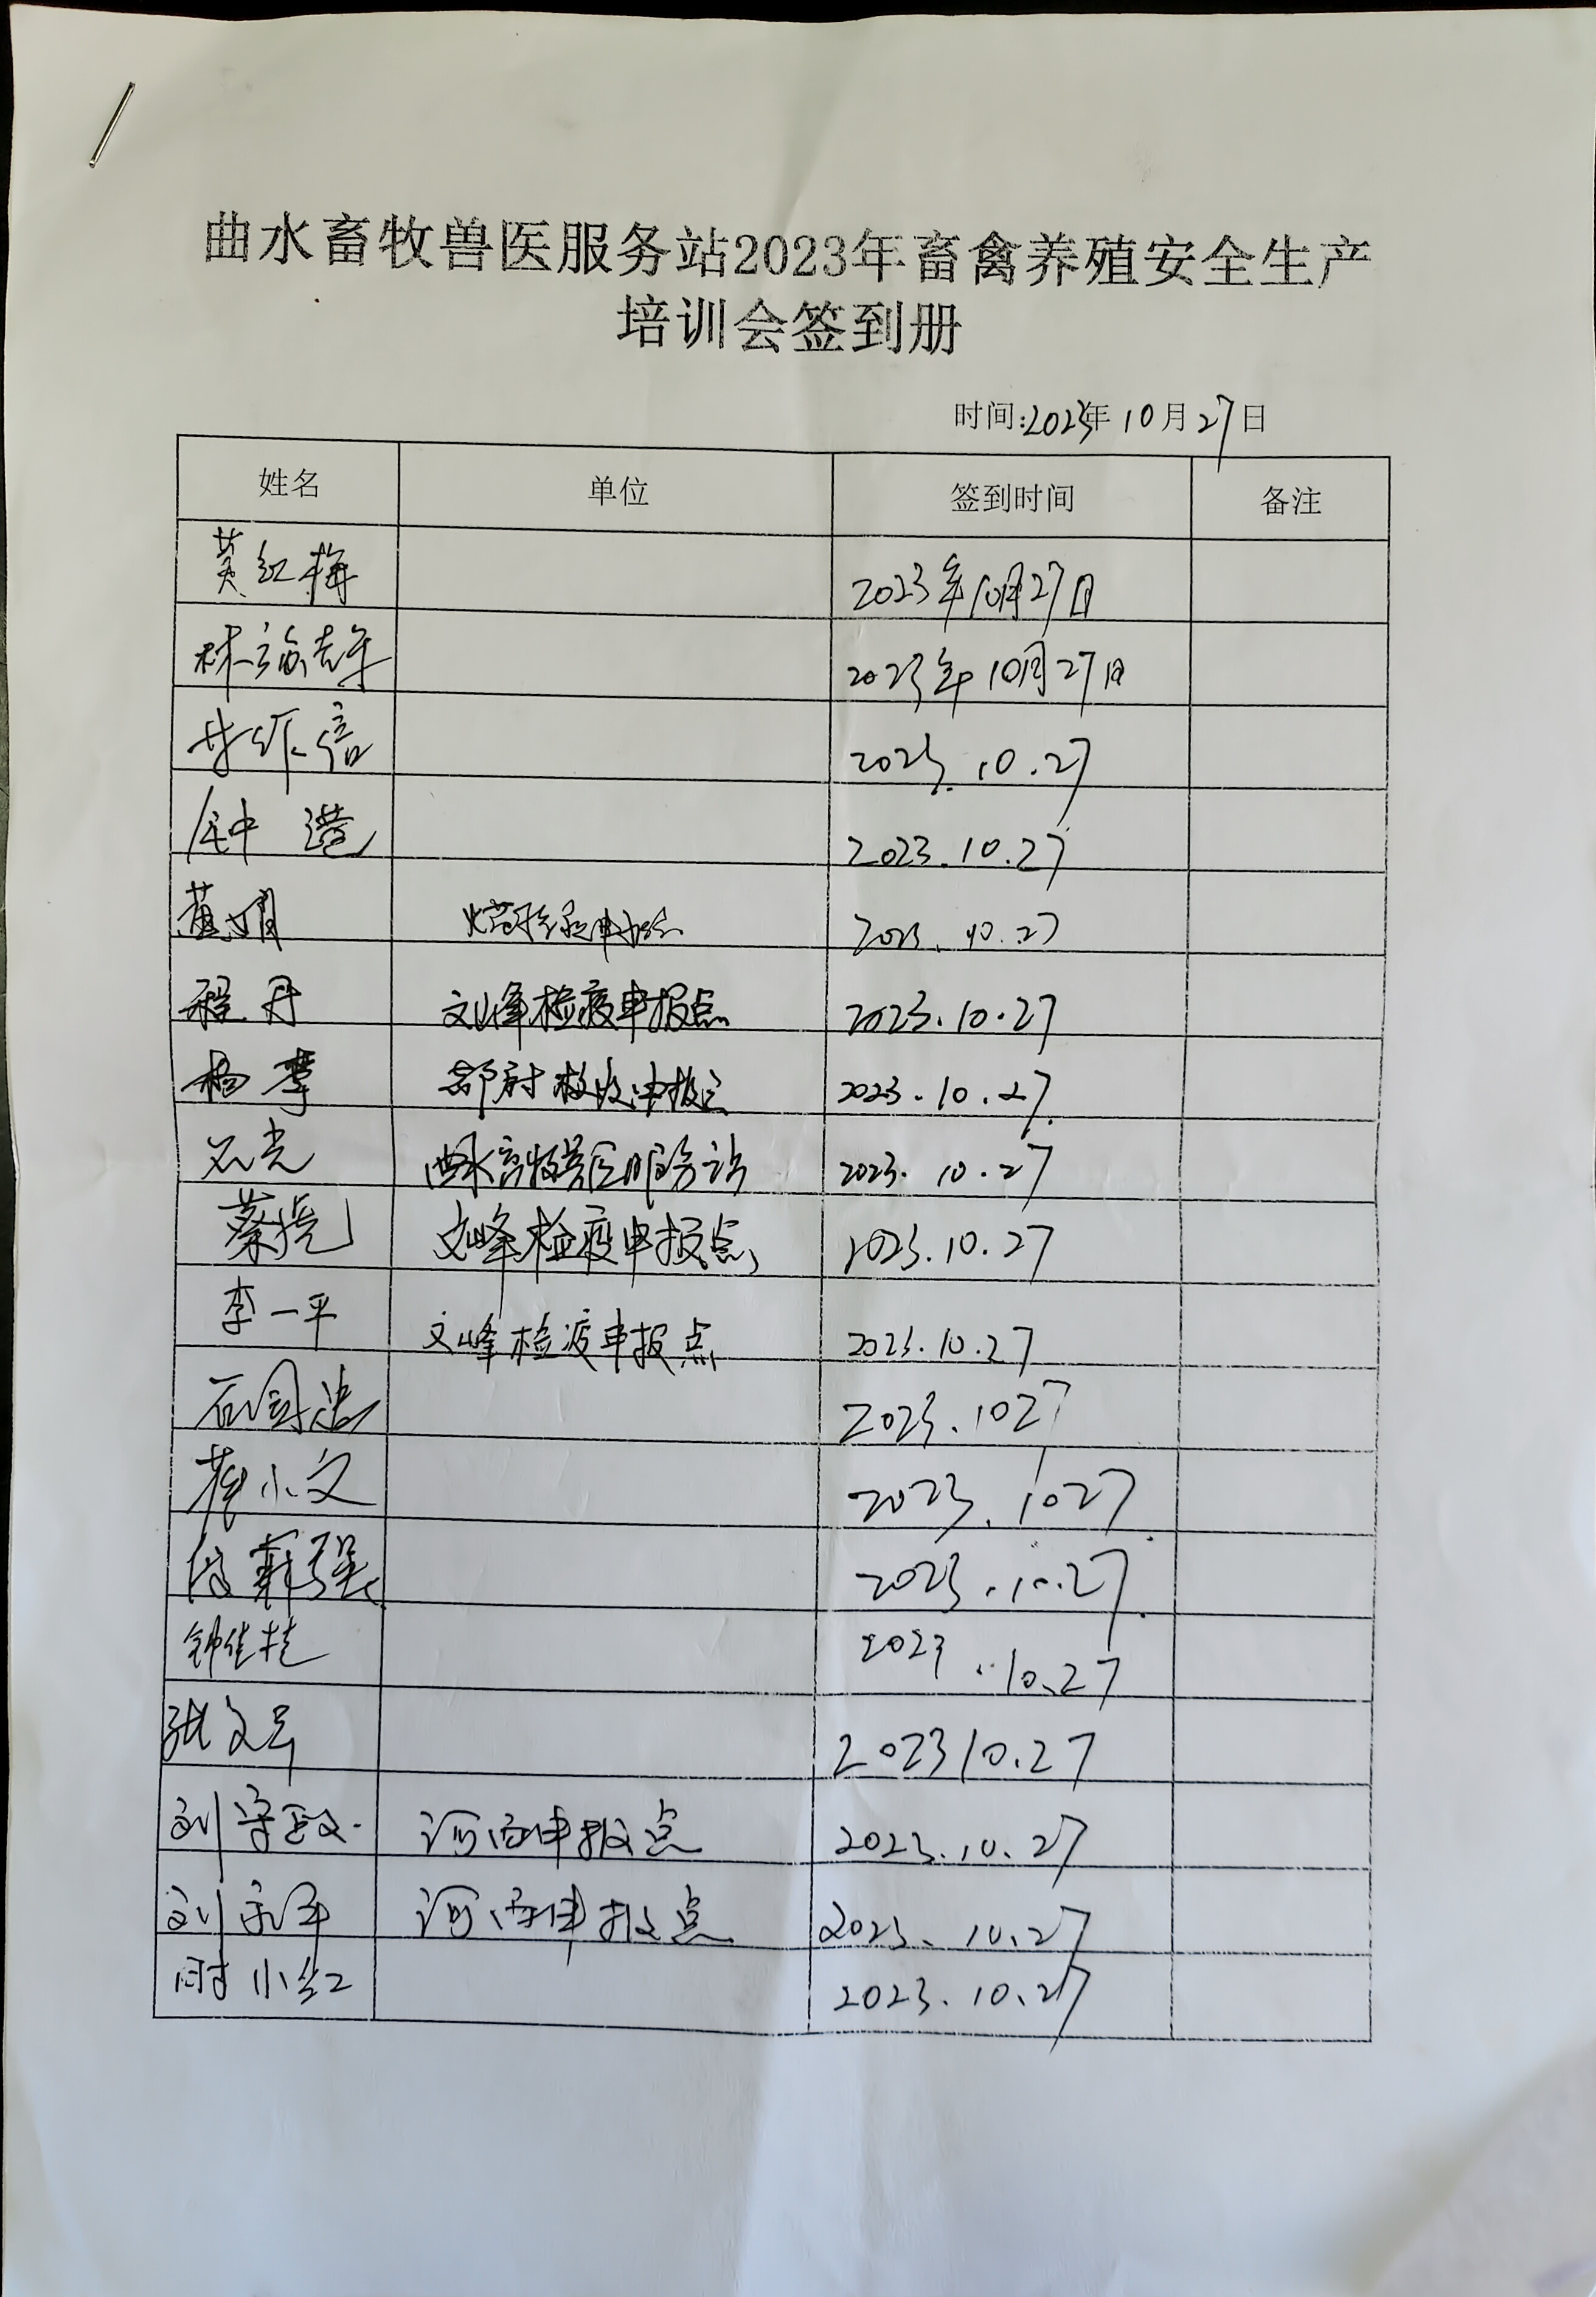 曲水畜牧兽医服务站2023年畜禽养殖安全生产
培训会签到册
时间:2023年10月27日
姓名 单位 签到时间 备注
黄红梅 2023年10月27日
2023年10月27日
2023.10.27
2023.10.27
2023.10.27
程丹 文峰检疫申报点 2023.10.27
杨 都尉检疫申报点 2023.10.27
石光 曲水畜牧兽医服务站 2023.10.27
蔡 文峰检疫申报点 2023.10.27
李一平 文峰检疫申报点 2023.10.27
石国忠 2023.1027
蒋小文 2023.1027
强 2023.10.27
钟 2023.10.27
张文军 2023 10.27
刘守政 河西申报点 2023.10.27
刘永军 河西申报点 2023.10.27
小红 2023.10.27